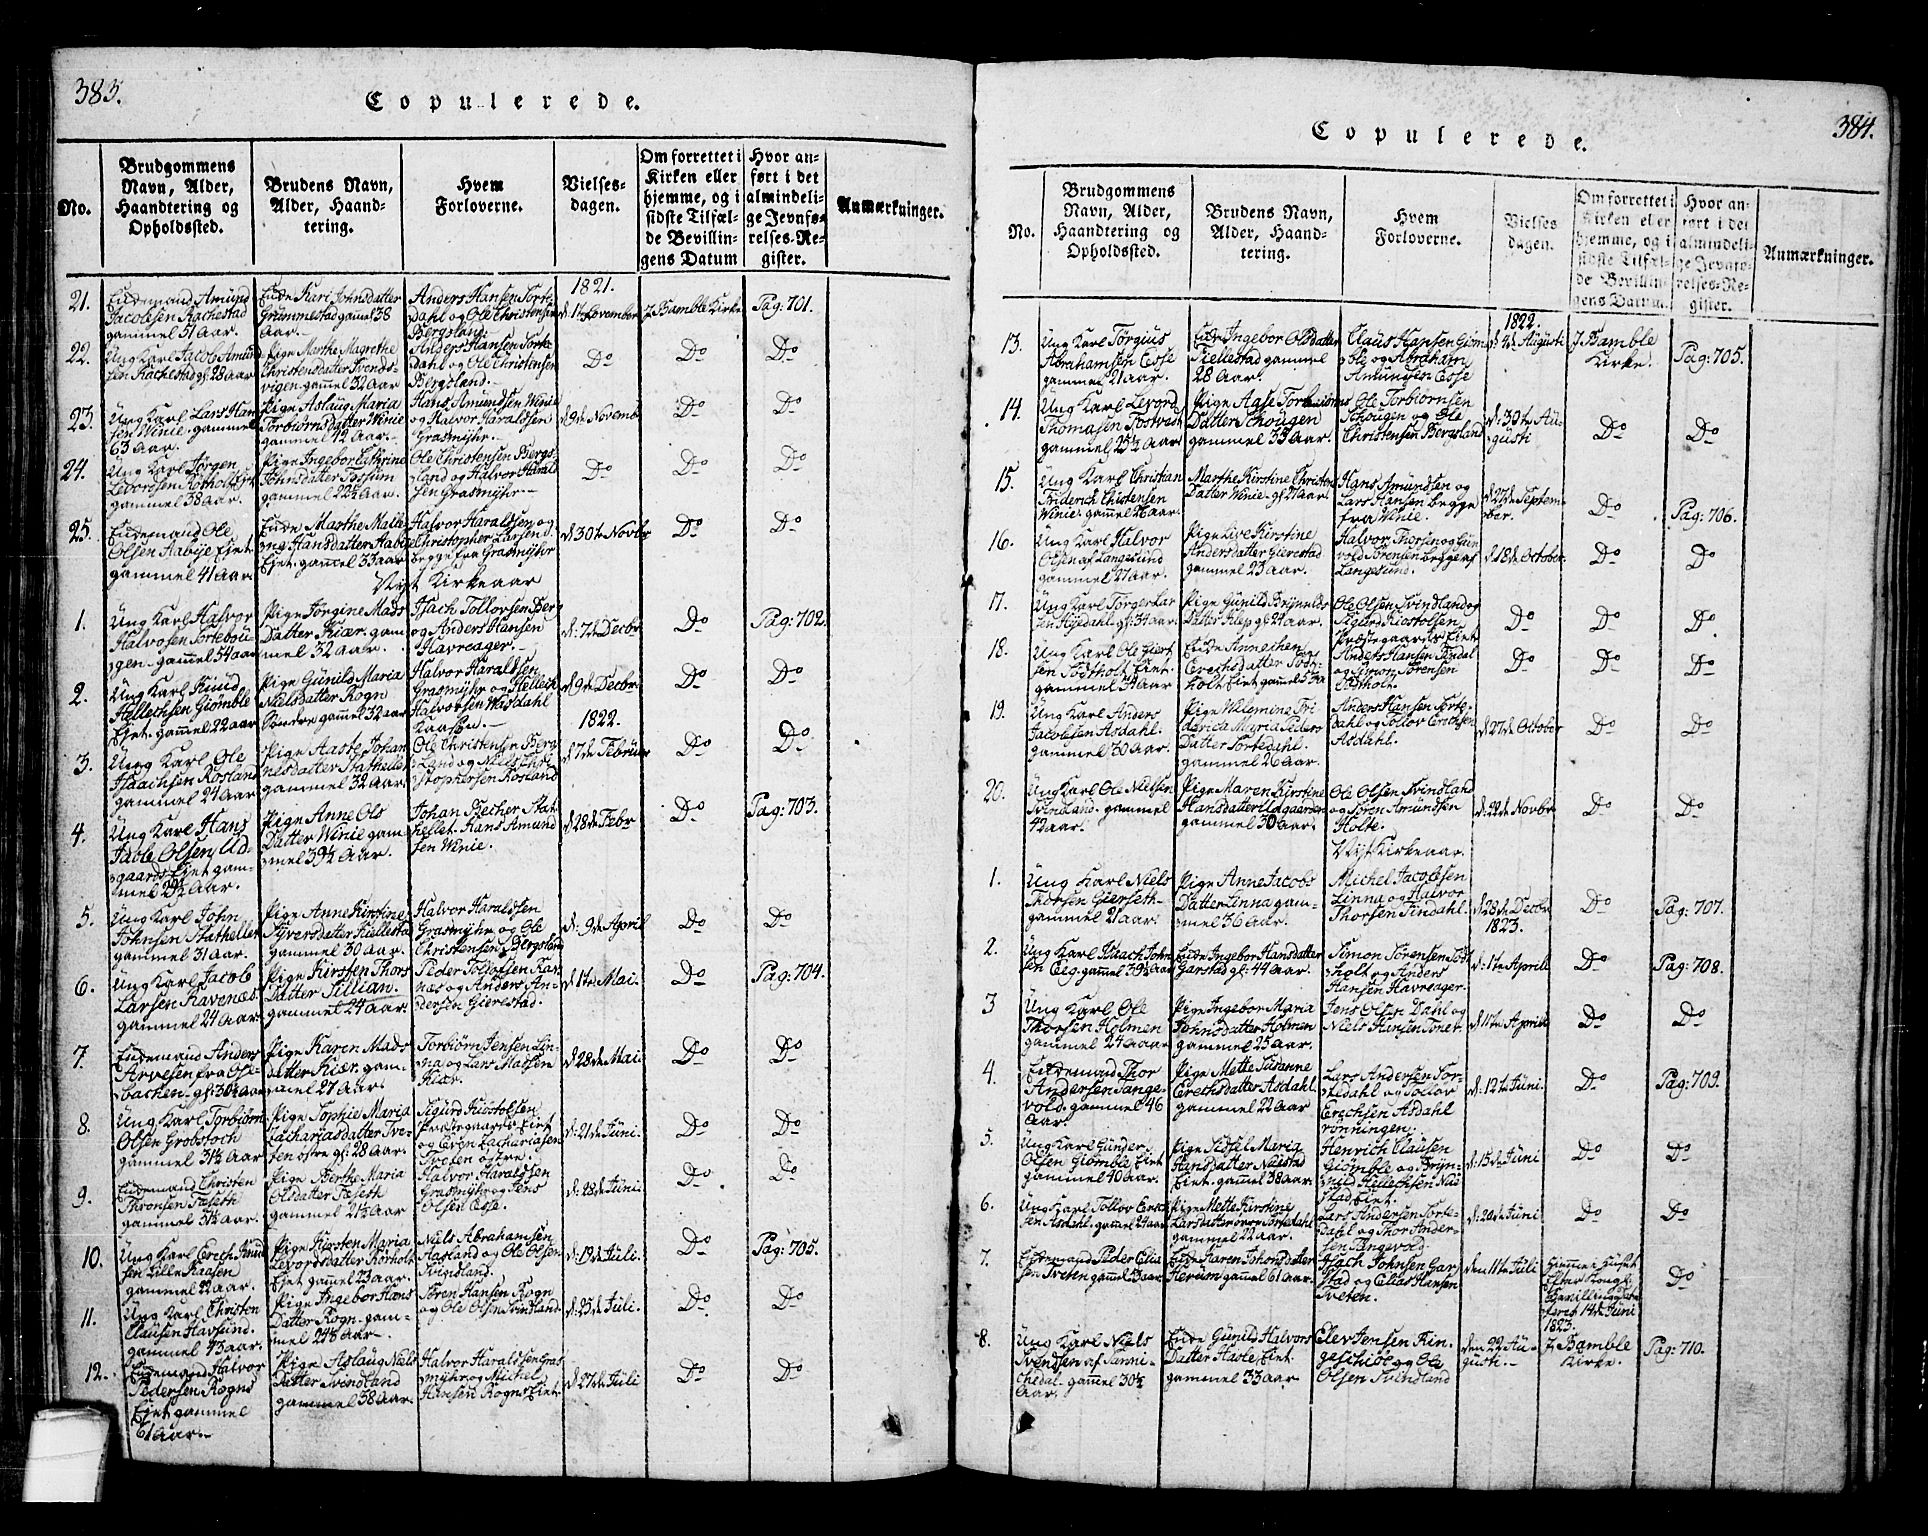 383.
Copulerede.
No.
Brudgommens
Navn, Alder,
Haandtering og
Opholdssted.
Brudens Navn,
Alder, Haand-
tering.
Hvem
Forloverne.
Vielses-
dagen.
Om forrettet i
Kirken eller
hjemme, og i
sidste Tilfæl-
de Bevillin-
gens Datum
Hvor an-
ført i det
almindeli-
ge Jevnfø-
relses-Re-
gister.
Anmærkninger.
1821.
21.
Enkemand Amund
Jacobsen Rachestad
gammel 51 Aar.
Enke Kari Johnsdatter
Grummestad gamel 38
Aar.
Anders Hansen Torte-
Dahl og Ole Christensen
Bergsland.
d: 1te November
J Bamble Kirke
Pag: 701.
22.
Ung Karl Jacob Amund
sen Rachestad gl: 28 Aar
Pige Marthe Magrethe
Christensdatter Svends-
vigen. gamel 32 Aar
Anders Hansen Torte
Dahl og Ole Christensen
Bergsland.
Do
Do
Do
23.
Ung Karl Lars Han
sen Winie. gammel
63 Aar.
Pige Aslaug Maria
Torbiørnsdatter Winie
gammel 42 Aar.
Hans Amundsen Winie
og Halvor Haraldsen
Grasmyhr.
d: 9de Novemb
Do
Do
24.
Ung Karl Jørgen
Levordsen Rørholt Eiet
gammel 38 Aar.
Pige Ingebor Cathrine
Johnsdatter Fossum
gammel 22½ Aar.
Ole Christensen Bergs-
land og Halvor Haral
sen Grasmyhr.
Do
Do
Do
25.
Enkemand Ole
Olsen Aabye Eiet.
gammel 41 Aar.
Enke Marthe Malle
ne Hansdatter Aabye
Eiet. gamel 33 aar
Halvor Haraldsen og
Christopher Larsen
begge fra Grasmyhr
d: 30te Novbr
Do
Do
Nyt Kirkeaar
1.
Ung Karl Halvor
Halvorsen Torteboie
gen. gamel 54 aar
Pige Jørgine Mads
Datter Kiær. gam
mel 32 Aar.
Isach Tollovsen Berg
og Anders Hansen
Havreager.
d: 7de Decbr
Do
Pag: 702.
2.
Ung Karl Knud
Hellechsen Giømble
Eiet. gammel 22 aar
Pige Gunild Maria
Nielsdatter Rogn
Søndre gamel 32 aar
Halvor Haraldsen
Grasmyhr og Hellech
Halvorsen Wasdahl
Kaasen.
d: 9de Decbr
Do
Do
1822.
3.
Ung Karl Ole
Isaachsen Rosland
gammel 24 Aar
Pige Aaste Johan
nesdatter Stathelle
gammel 32 Aar.
Ole Christensen Berg
Land og Niels Chri
stophersen Rosland
d: 7de Februar
Do
Do
4.
Ung Karl Hans
Jacob Olsen Ud-
gaards Eiet gam-
mel 29½ Aar.
Pige Anne Ols
Datter Winie gam
mel 39½ Aar.
Johan Becher Stat
hellet. Hans Amund
sen Winie.
d: 28de Febr
Do
Pag: 703.
5.
Ung Karl John
Johnsen Stathellen
gammel 31 Aar.
Pige Anne Kirstine
Syversdatter Kiellestad
gammel 30 Aar.
Halvor Haraldsen
Grasmyhr og Ole
Christensen Bergsland
d: 9de April
Do
Do
6.
Ung Karl Jacob
Larsen Ravenæs
gammel 24 Aar.
Pige Kirsten Thors
Datter Tillian.
gammel 24 aar.
Peder Tollofsen Rav
næs og Anders An-
dersen Gierestad.
d: 1te Mai.
Do
Pag: 704.
7.
Enkemand Anders
Arvesen fra Ose-
bachen. gl: 30½ Aar
Pige Karen Mads
datter Kiær. gam
mel 27 Aar.
Torbiørn Jensen Lin-
na og Lars Madsen
Kiær.
d: 28de Mai.
Do
Do
8.
Ung Karl Torbiørn
Olsen Grobstoch
gammel 31½ Aar
Pige Sophie Maria
Zachariasdatter Tve-
ten østre gl: 28 Aar.
Sigurd Kiostolsen
Præstegaards Eiet
og Even Zachariasen
Tveten østre.
d: 21de Juni.
Do
Do
9.
Enkemand Christen
Thronsen Fæseth
gammel 31½ Aar.
Pige Berthe Maria
Olsdatter Fæseth
gammel 21½ Aar
Halvor Haraldsen
Grasmyhr og Jens
Olsen Esse.
d: 28de Juni.
Do
Do
10.
Ung Karl Erech Knud
sen Lille Kaasen
gammel 22 Aar.
Pige Kirsten Maria
Levordsdatter Rørholt
Eiet gamel 23 Aar.
Niels Abrahamsen
Aasland og Ole Olsen
Svindland.
d: 19de Juli.
Do
Pag: 705.
11.
Ung Karl Christen
Clausen Havsund.
gammel 43 aar.
Pige Ingebor Hans
Datter Rogn. gam-
mel 24½ Aar.
Søren Hansen Rogn
og Ole Olsen Svindland.
d: 25de Juli.
Do
Do
12.
Enkemand Halvor
Pedersen Rogns
Eiet gammel
61 Aar.
Pige Aslaug Niels
Datter Svendland
gammel 38 Aar.
Halvor Haraldsen Gras
myhr og Michel
Iversen Rogns Eiet.
d: 27de Juli
Do
Do
384.
Copulerede.
No.
Brudgommens
Navn, Alder,
Haandtering og
Opholdssted.
Brudens Navn,
Alder, Haand-
tering.
Hvem
Forloverne.
Vielses
dagen.
Om forrettet i
Kirken eller
hjemme, og i
sidste Tilfæl-
de Bevillin-
gens Datum.
Hvor an-
ført i det
almindeli-
ge Jevnfø-
relses-Re-
gister.
Anmærkninger.
1822.
13.
Ung Karl Tørgius
Abrahamsen Esse
gammel 21 Aar.
Enke Ingebor Olsdatter
Kiellestad gammel
28 Aar.
Claus Hansen Giøm
ble og Abraham
Amundsen Esse
d: 4de Augusti
J Bamble
Kirke.
Pag: 705.
14.
Ung Karl Levord
Thomasen Tostvedt
gammel 25½ Aar
Pige Aase Torbiørns
Datter Schougen
gammel 35 Aar.
Ole Torbiørnsen
Schougen og Ole
Christensen Bergsland
d: 30te Au-
gusti
Do
Do
15.
Ung Karl Christian
Friderich Christensen
Winie. gammel 26 aar.
Marthe Kirstine Christens
Datter Winie. gl: 21 aar
Hans Amundsen og
Lars Hansen begge
fra Winie.
d: 27de Septem-
ber.
Do
Pag: 706.
16.
Ung Karl Halvor
Olsen af Langesund
gammel 27 Aar.
Pige Live Kirstine
Andersdatter Gierestad
gammel 23 Aar.
Halvor Thorsen og Gun
vold Sørensen begge af
Langesund.
d: 18de October
Do
D
17.
Ung Karl Tørger Lar
sen Højedahl. gl: 34 aar
Pige Gunild Brynelds
Datter Klep gl: 24 aar.
Ole Olsen Svindland og
Sigurd Kiostolsen
Præstegaards Eiet
Do
Do
Do
18.
Ung Karl Ole Giert
sen Todtholt Eiet.
gammel 34 Aar
Enke Anneichen
Erechsdatter Todt-
holt Eiet gamel 53 A
Anders Hansen Findal
og Simon Sørensen
Todtholt.
Do
Do
Do
19.
Ung Karl Anders
Jacobsen Asdahl.
gammel 30 Aar.
Pige Wilemine Fri
derica Maria Peders
Datter Tortedahl.
gammel 26 Aar.
Anders Hansen Torte-
Dahl og Tollov Erechsen
Asdahl.
d: 27de October
Do
Do
20.
Ung Karl Ole Nielsen
Svindland. gammel
42 Aar.
Pige Maren Kirstine
Hansdatter Udgaarden
gammel 30 Aar.
Ole Olsen Svindland
og Søren Amundsen
Holte.
d: 22de Novbr
Do
Do
Nyt Kirkeaar.
1.
Ung Karl Niels
Thorsen Gierseth-
gammel 21 Aar.
Pige Anne Jacobs
Datter Linna gam-
mel 36 Aar.
Michel Jacobsen
Linna og Halvor
Thorsen Findahl.
d: 28de Decbr
Do
Pag: 707.
1823.
2.
Ung Karl Isaach John
sen Eeg. gammel 39½ Aar
Enke Ingebor Hansdatter
Garstad gl: 44 Aar.
Simon Sørensen Todt
holt og Anders
Hansen Havreager.
d: 1te Aprili
Do
Pag: 708.
3
Ung Karl Ole
Thorsen Holmen
gammel 24 aar
Pige Ingebor Maria
Johnsdatter Holmen
gammel 25 aar.
Jens Olsen Dahl og
Niels Hansen Tonet.
d: 11te Aprili
Do
Do
4.
Enkemand Thor
Andersen Tange-
vold. gammel 46
Aar.
Pige Mette Susanne
Erechsdatter Asdahl.
gammel 22 Aar
Lars Andersen Tor-
tedahl og Tollov
Erechsen Asdahl
rønningen.
d: 12te Juni.
Do
Pag: 709.
5.
Ung Karl Gunder
Olsen Giømble Eiet
gammel 40 aar.
Pige Sidsel Maria
Hansdatter Næstad
Eiet. gammel 38 aar.
Henrich Clausen
Giømble og Bryn-
nild Hellechsen Næ
stad Eiet.
d: 15de Juni
Do
Do
6.
Ung Karl Tollov Erech
sen Asdahl. gammel 24 aar
Pige Mette Kirstine
Larsdatter øvre Tortedahl
gammel 22 aar.
Lars Andersen Torte-
Dahl og Thor Ander-
sen Tangevold.
d: 22de Juni
Do
Do
7.
Enkemand Peder Elia
sen Tveten gamel 73 aar.
Enke Karen Johnsdatter
Herum gamel 61 aar.
Isach Johnsen Gar
stad og Elias Hansen
Tveten.
den 11te Juli
Hjemme i Huset
Efter Kongl:
Bevilling date
feret 14de Juni
1823.
Do
8.
Ung Karl Niels
Svendsen af Sanni-
chedal. gammel 30½
Aar.
Enke Gunild Halvors
Datter Hasle Eiet
gammel 33 aar
Elev Jensen Rin-
geschioe og Ole
Olsen Svindland
den 22 Au-
gusti.
J Bamble
Kirke.
Pag: 710.